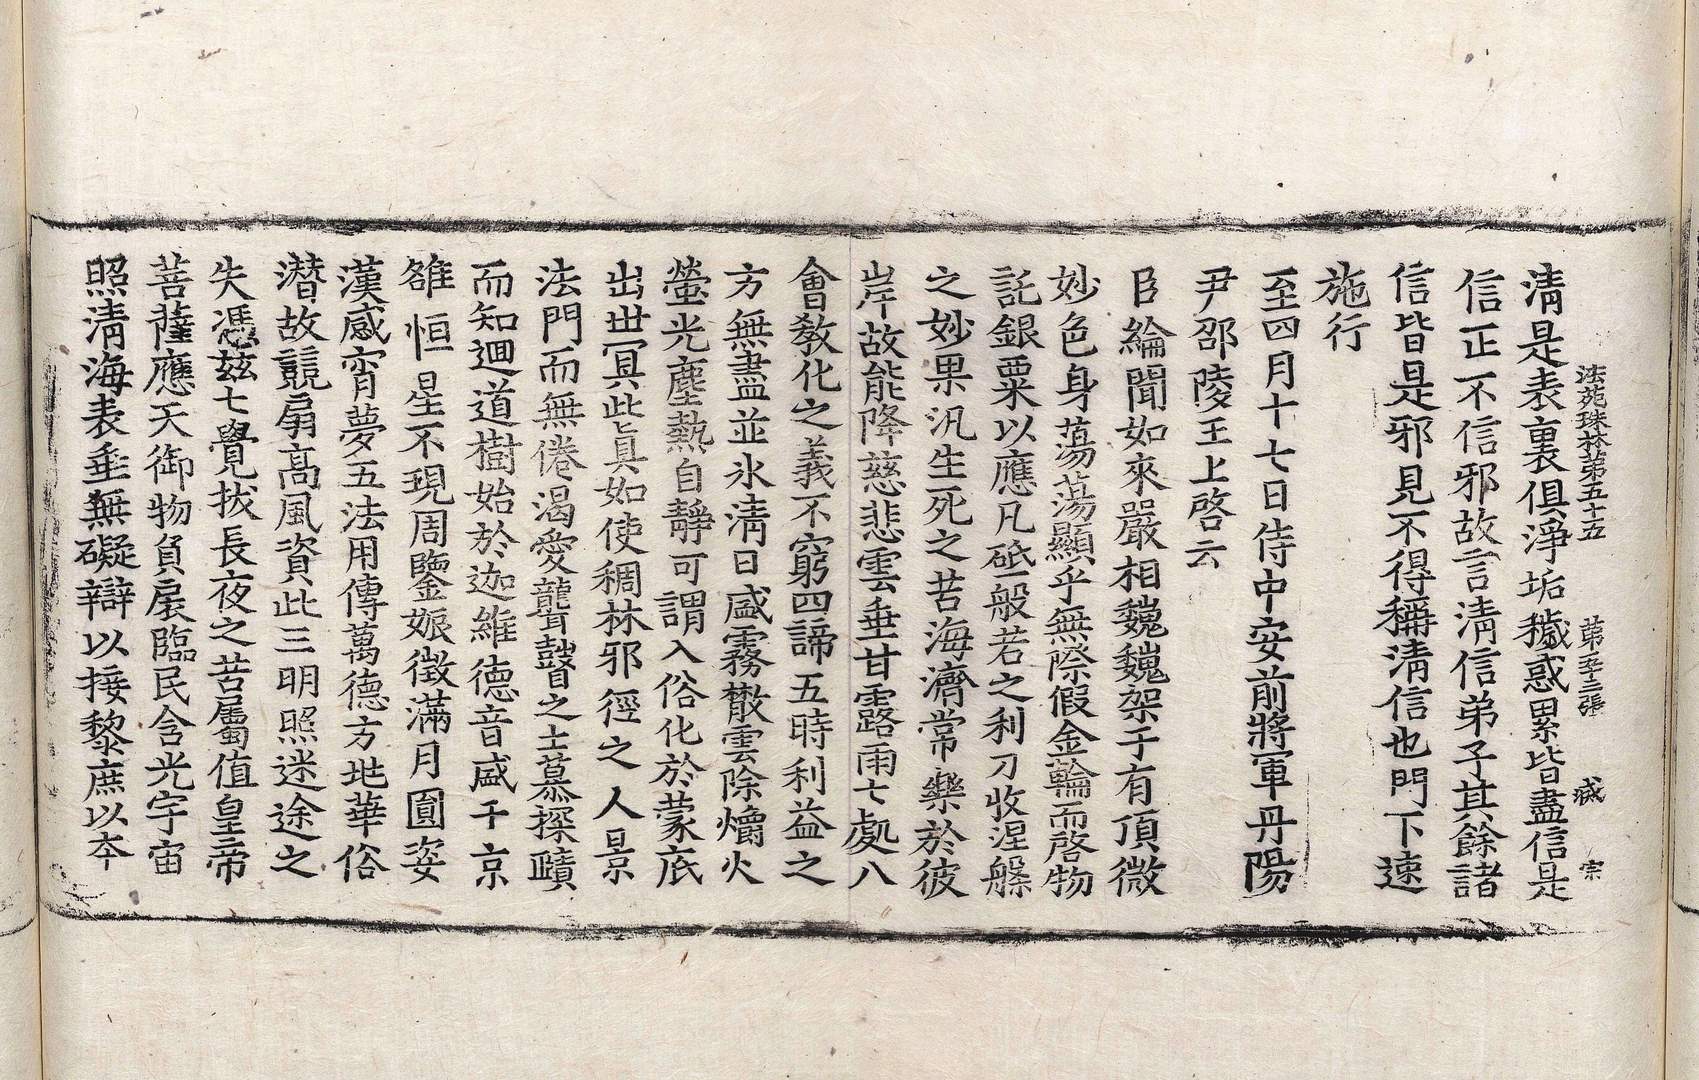 法苑珠林第五十五 第五十三張 宗
清是表裏俱淨垢穢惑累皆盡信是
信正不信邪故言清信弟子其餘諸
信皆是邪見不得稱清信也門下速
施行
至四月十七日侍中安前將軍丹陽
尹邵陵王上啓云
臣綸聞如來嚴相巍巍架于有頂微
妙色身蕩蕩顯乎無際假金輪而啓物
託銀粟以應凡砥般若之利刀收涅槃
之妙果汎生死之苦海濟常樂於彼
岸故能降慈悲雲垂甘露雨七處八
會敎化之義不窮四諦五時利益之
方無盡並氷清日盛霧散雲除爝火
螢光塵熱自靜可謂入俗化於蒙底
出世冥此眞如使稠林邪徑之人景
法門而無倦渴愛聾瞽之士慕探賾
而知迴道樹始於迦維德音盛于京
雒恒星不現周鑒娠徵滿月圓姿
漢感宵夢五法用傳萬德方兆華俗
潛故競扇高風資此三明照迷途之
失憑茲七覺拔長夜之苦屬値皇帝
菩薩應天御物負扆臨民含光宇宙
照清海表垂無礙辯以接黎庶以本